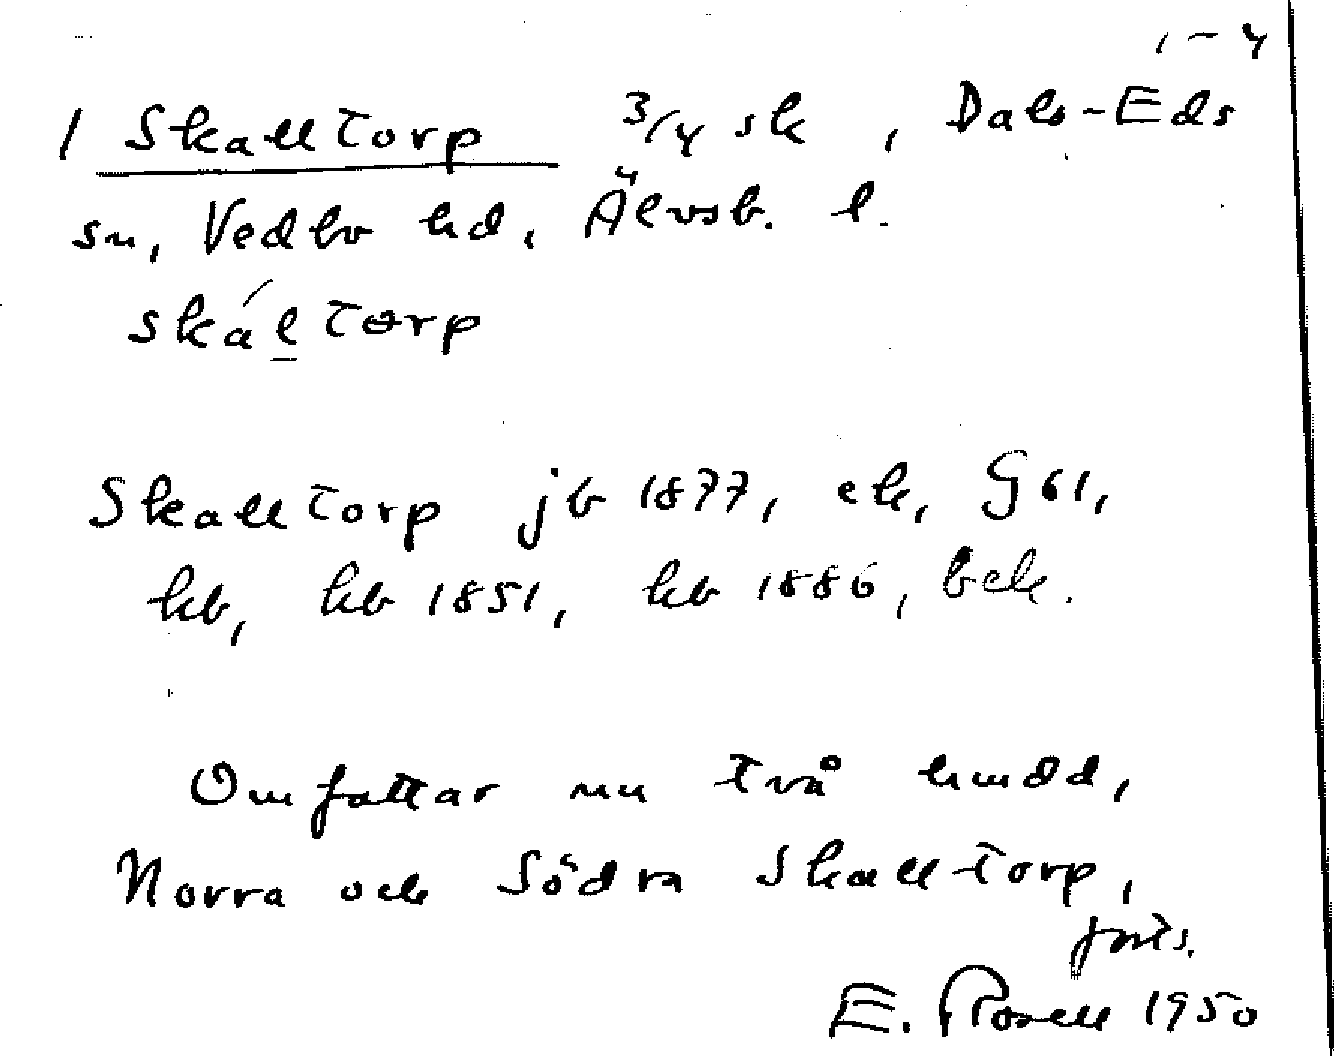 1-4
1 Skalltorp 3/4 sk, Dals-Eds
sn, Vedbo hd, Älvsb. l.
skál torp
Skalltorp jb 1877, ek, G 61,
kb, kb 1851, kb 1886, bek.
Omfattar nu två hmdd,
Norra och Södra Skalltorp,
forts.
E. Rosell 1950